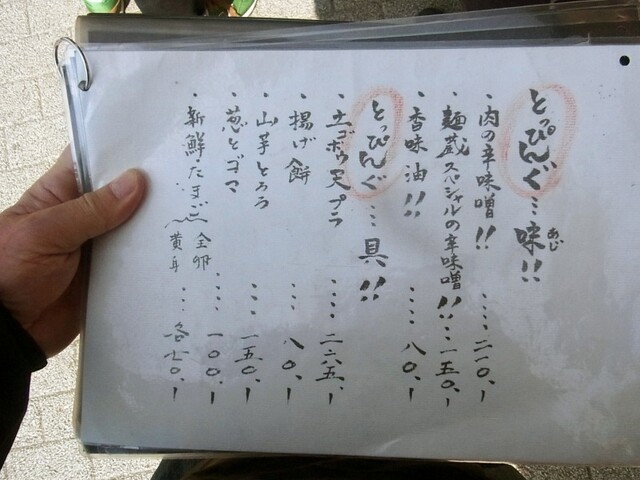 とっぴんぐ…味!!
あじ
・肉の辛味噌!! ････二一〇、ー
・麺蔵スペシャルの辛味噌!!･･･一五〇、ー
・香味油!! ･････八〇、ー
とっぴんぐ…具!!
・土ゴボウ天プラ ････二六五、ー
・揚げ餅 ････八〇、ー
・山芋とろろ ････一五〇、ー
・葱とゴマ ････一〇〇、ー
・新鮮たまご〜全卵 黄身 ････各七〇、ー